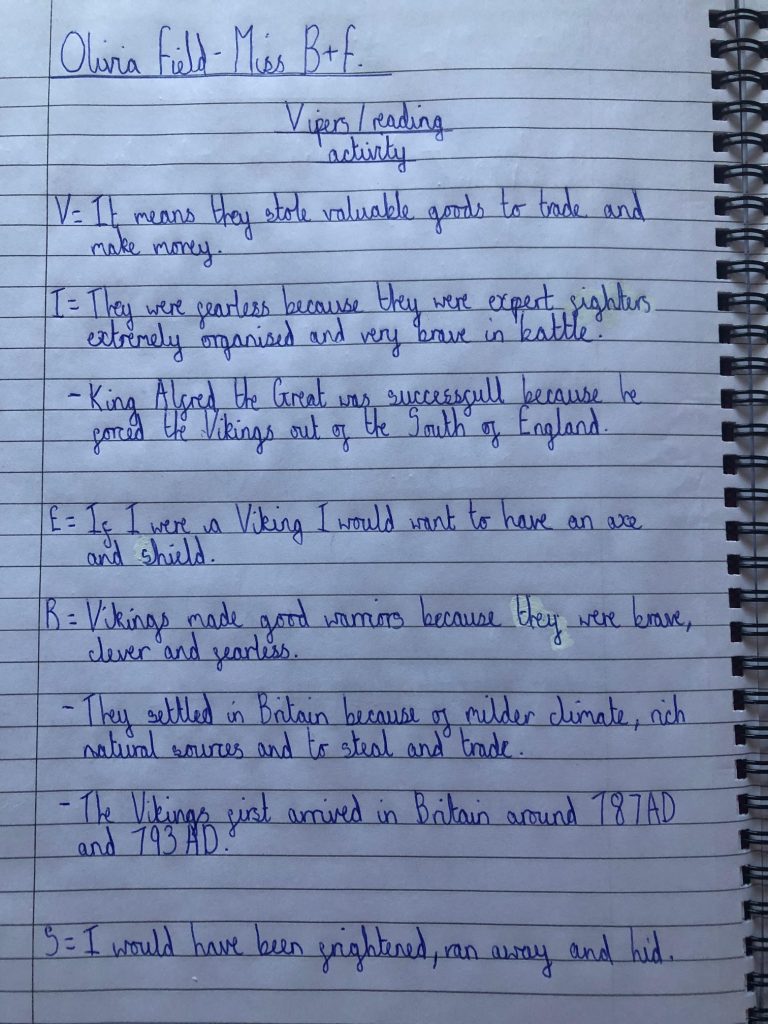 Olivia Field - Miss B+F.
Vipers / reading
activity
V = It means they stole valuable goods to trade and
make money.
I = They were fearless because they were expert fighters
extremely organised and very brave in battle.
- King Alfred the Great was successfull because he
forced the Vikings out of the South of England.
E = If I were a Viking I would want to have an axe
and shield.
R = Vikings made good warriors because they were brave,
clever and fearless.
- They settled in Britain because of milder climate, rich
natural sources and to steal and trade.
- The Vikings first arrived in Britain around 787AD
and 793AD.
S = I would have been frightened, ran away and hid.